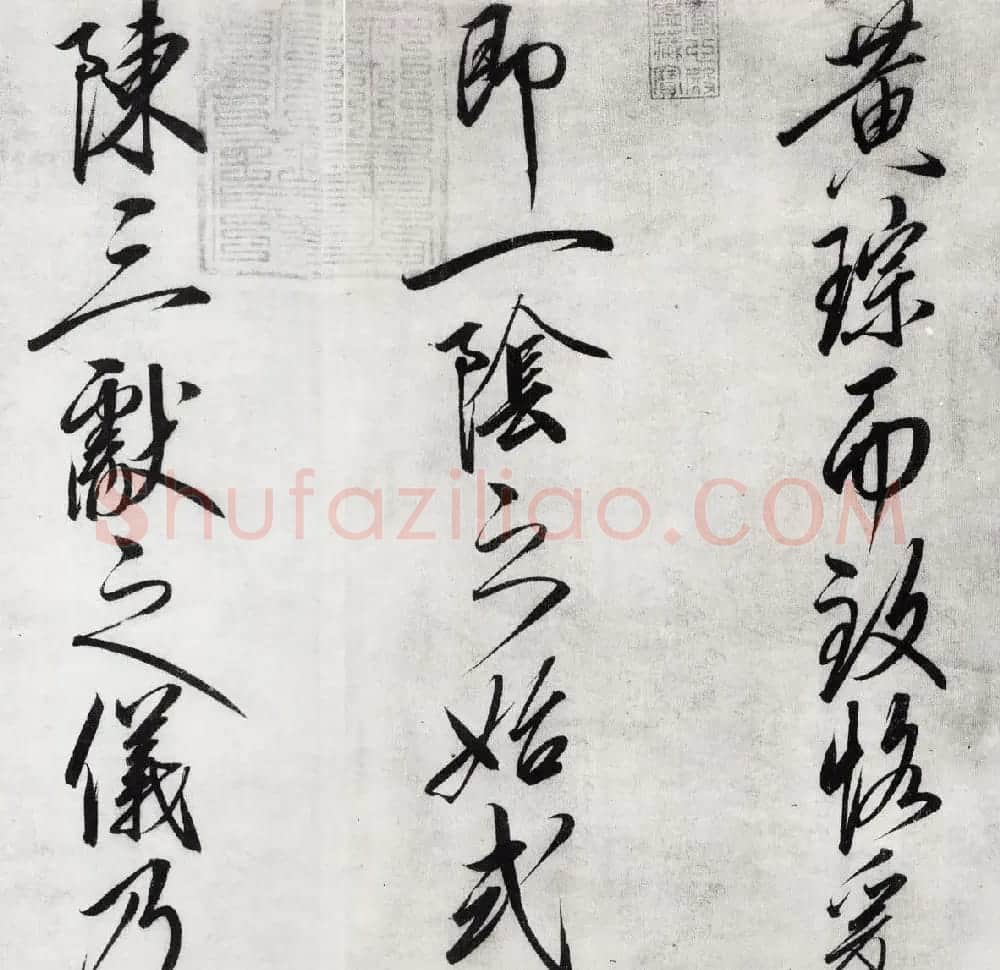 黄琮而致恪爰
即一陰之始式
陳三獻之儀乃
Shufaziliao.COM